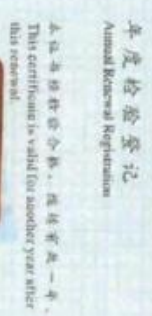 年度检验登记
Annual Renewal Registration
本证书经检验合格，继续有效一年。
This certificate is valid for another year after
this renewal.